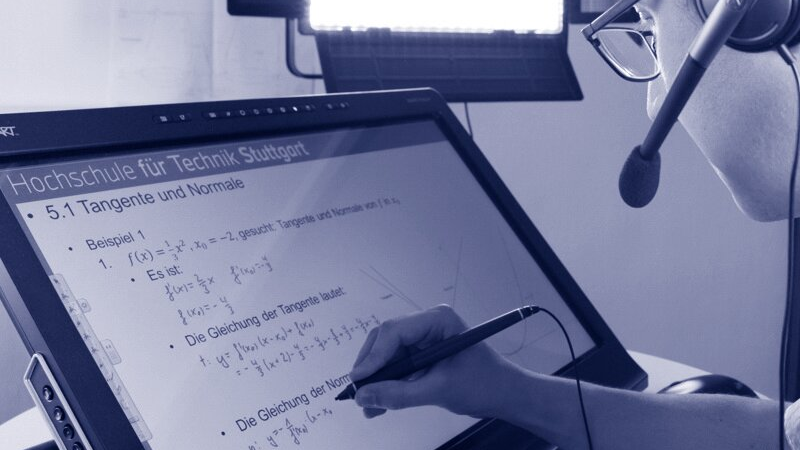 Hochschule für Technik Stuttgart
• 5.1 Tangente und Normale
• Beispiel 1
1. f(x) = 1/3 x², x₀ = -2, gesucht: Tangente und Normale von f in x₀
• Es ist:
f'(x) = 2/3 x f'(x₀) = -4/3
• Die Gleichung der Tangente lautet:
t: y = f'(x₀)(x-x₀) + f(x₀)
• Die Gleichung der Norm